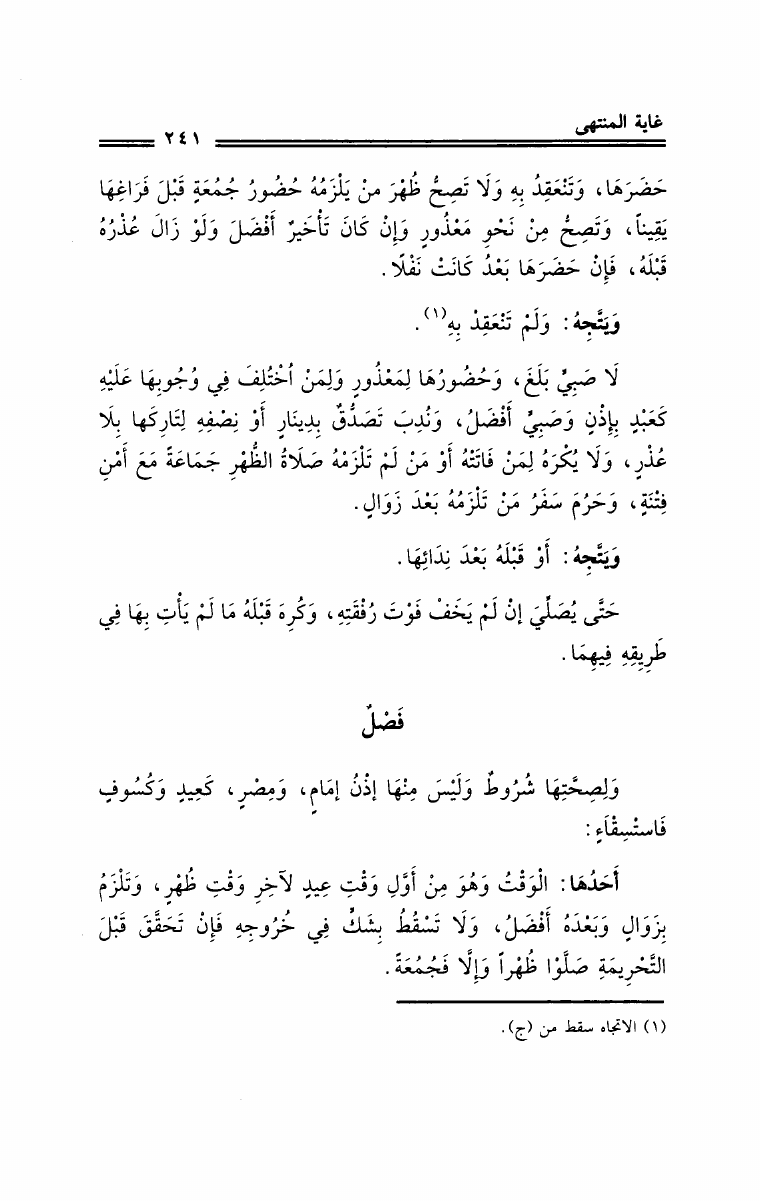 غاية المنتهى
٢٤١
حَضَرَهَا، وَتَنْعَقِدُ بِهِ وَلَا تَصِحُّ ظُهْرَ منْ يَلْزَمُهُ حُضُورُ جُمُعَةٍ قَبْلَ فَرَاغِهَا
يَقِيناً، وَتَصِحُّ مِنْ نَحْوِ مَعْذُورٍ وَإِنْ كَانَ تَأْخَيرٌ أَفْضَلَ وَلَوْ زَالَ عُذْرُهُ
قَبْلَهُ، فَإِنْ حَضَرَهَا بَعْدُ كَانَتْ نَفْلًا.
وَيَتَّجِهُ: وَلَمْ تَنْعَقِدْ بِهِ(١).
لَا صَبِيٍّ بَلَغَ، وَحُضُورُهَا لِمَعْذُورٍ وَلِمَنْ اُخْتُلِفَ فِي وُجُوبِهَا عَلَيْهِ
كَعَبْدٍ بِإِذْنٍ وَصَبِيٍّ أَفْضَلُ، وَنُدِبَ تَصَدُّقٌ بِدِينَارٍ أَوْ نِصْفِهِ لِتَارِكَها بِلَا
عُذْرٍ، وَلَا يُكْرَهُ لِمَنْ فَاتَتْهُ أَوْ مَنْ لَمْ تَلْزَمْهُ صَلَاةُ الظُّهْرِ جَمَاعَةً مَعَ أَمْنِ
فِتْنَةٍ، وَحَرُمَ سَفَرُ مَنْ تَلْزَمُهُ بَعْدَ زَوَالٍ.
وَيَتَّجِهُ: أَوْ قَبْلَهُ بَعْدَ نِدَائِهَا.
حَتَّى يُصَلِّيَ إنْ لَمْ يَخَفْ فَوْتَ رُفْقَتِهِ، وَكُرِهَ قَبْلَهُ مَا لَمْ يَأْتِ بِهَا فِي
طَرِيقِهِ فِيهِمَا.
فَصْلٌ
وَلِصِحَّتِهَا شُرُوطٌ وَلَيْسَ مِنْهَا إذْنُ إمَامٍ، وَمِصْرٍ، كَعِيدٍ وَكُسُوفٍ
فَاستْسِقْاَءٍ:
أَحَدُهَا: الْوَقْتُ وَهُوَ مِنْ أَوَّلِ وَقْتِ عِيدٍ لآخِرِ وَقْتِ ظُهْرٍ، وَتَلْزَمُ
بِزَوَالٍ وَبَعْدَهُ أَفْضَلُ، وَلَا تَسْقُطُ بِشَكٍّ فِي خُرُوجِهِ فَإِنْ تَحَقَّقَ قَبْلَ
التَّحْرِيمَةِ صَلَّوْا ظُهْراً وَإِلَّا فَجُمُعَةً.
(١) الاتجاه سقط من (ج).